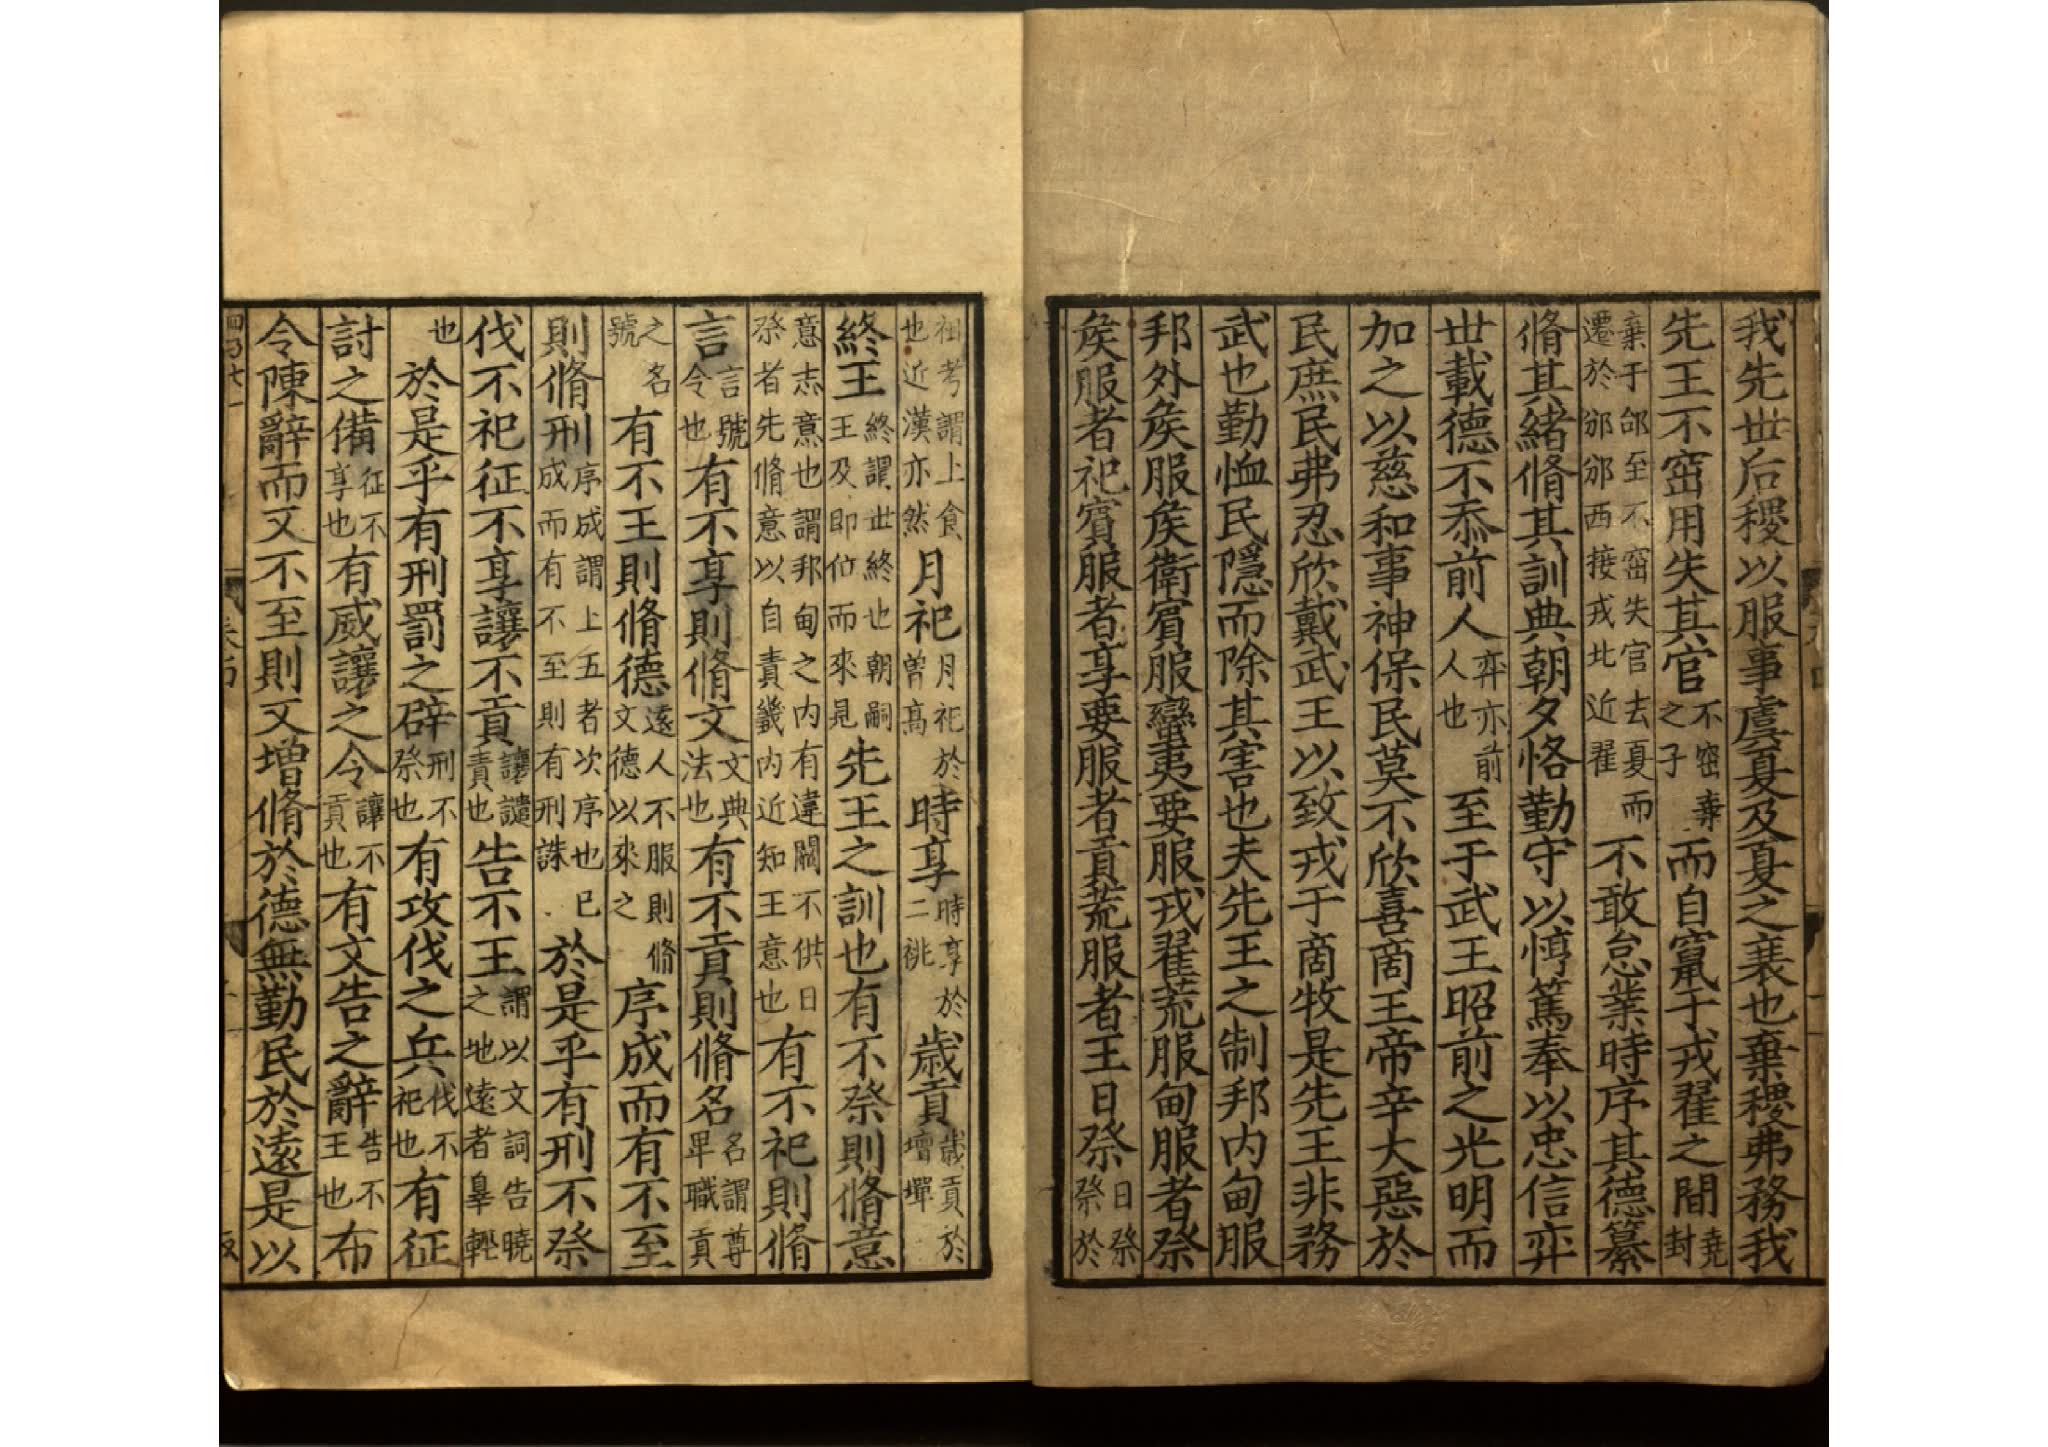 我先世后稷以服事虞夏及夏之衰也棄稷弗務我
先王不窋用失其官不窋棄之子而自竄于戎翟之間堯封
棄于邰至不窋失官去夏而遷於邠邠西接戎北近翟不敢怠業時序其德纂
脩其緒脩其訓典朝夕恪勤守以惇篤奉以忠信弈
世載德不忝前人弈亦前人也至于武王昭前之光明而
加之以慈和事神保民莫不欣喜商王帝辛大惡於
民庶民弗忍欣戴武王以致戎于商牧是先王非務
武也勤恤民隱而除其害也夫先王之制邦内甸服
邦外矦服矦衛賓服蠻夷要服戎翟荒服甸服者祭
矦服者祀賓服者享要服者貢荒服者王日祭日祭祭於
祖考謂上食也近漢亦然月祀月祀於曾高時享時享於二祧歲貢歲貢於壇墠
終王終謂世終也朝嗣王及即位而來見先王之訓也有不祭則脩意
意志意也謂邦甸之内有違闕不供日祭者先脩意以自責畿内近知王意也有不祀則脩
言言號令也有不享則脩文文典法也有不貢則脩名名謂尊卑職貢
之名號有不王則脩德遠人不服則脩文德以來之序成而有不至
則脩刑序成謂上五者次序也已成而有不至則有刑誅於是乎有刑不祭
伐不祀征不享讓不貢讓譴責也告不王謂以文詞告曉之地遠者辠輕
也於是乎有刑罰之辟刑不祭也有攻伐之兵伐不祀也有征
討之備征不享也有威讓之令讓不貢也有文告之辭告不王也布
令陳辭而又不至則又增脩於德無勤民於遠是以